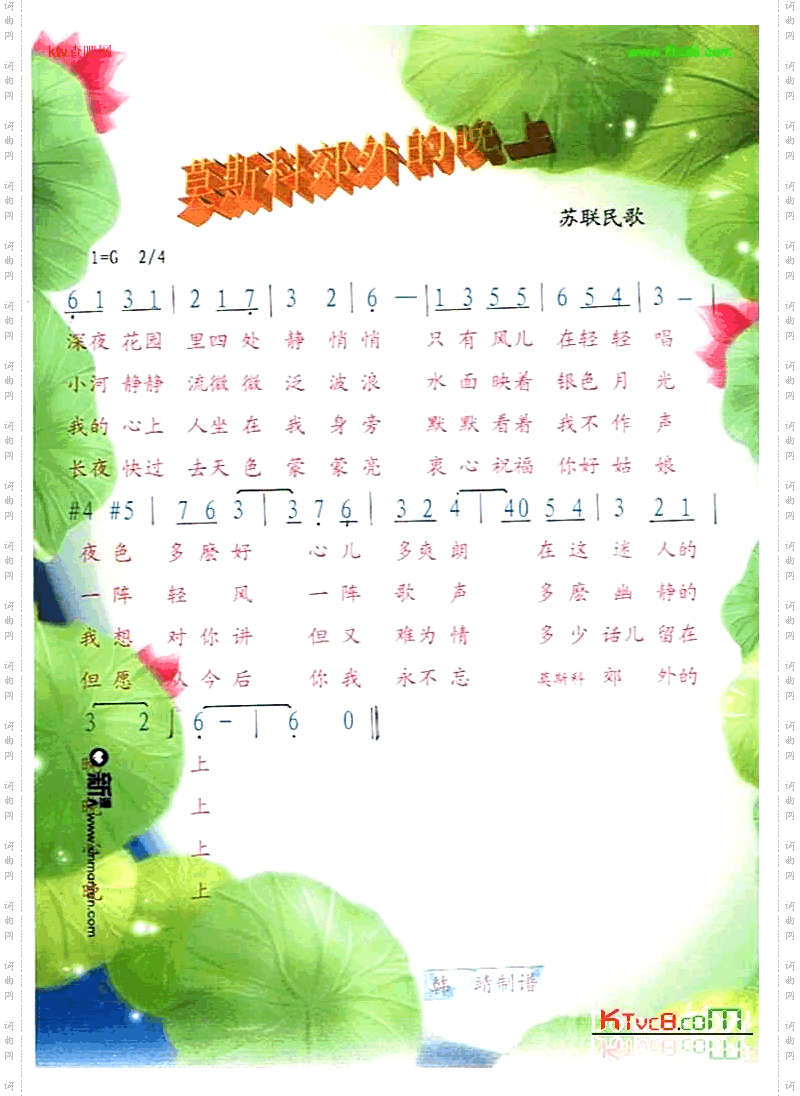 ktv.查吧网
www.ktvc8.com
莫斯科郊外的晚上
苏联民歌
1=G 2/4
6 1 3 1 | 2 1 7 | 3 2 | 6 — | 1 3 5 5 | 6 5 4 | 3 – |
深夜 花园 里四 处 静 悄 悄 只 有 风儿 在轻 轻 唱
小河 静静 流微 微 泛 波 浪 水 面 映着 银色 月 光
我的 心上 人坐 在 我 身 旁 默 默 看着 我不 作 声
长夜 快过 去天 色 蒙 蒙 亮 衷 心 祝福 你好 姑 娘
#4 #5 | 7 6 3 | 3 7 6 | 3 2 4 | 4 0 5 4 | 3 2 1 |
夜 色 多 麽 好 心 儿 多 爽 朗 在 这 迷 人的
一 阵 轻 风 一 阵 歌 声 多 麽 幽 静的
我 想 对 你 讲 但 又 难 为 情 多 少 话儿 留在
但 愿 从 今 后 你 我 永 不 忘 莫斯科 郊 外的
3 2 | 6 – | 6 0 ‖
上
上
上
上
韩 靖制谱
KTvc8.com
词曲网